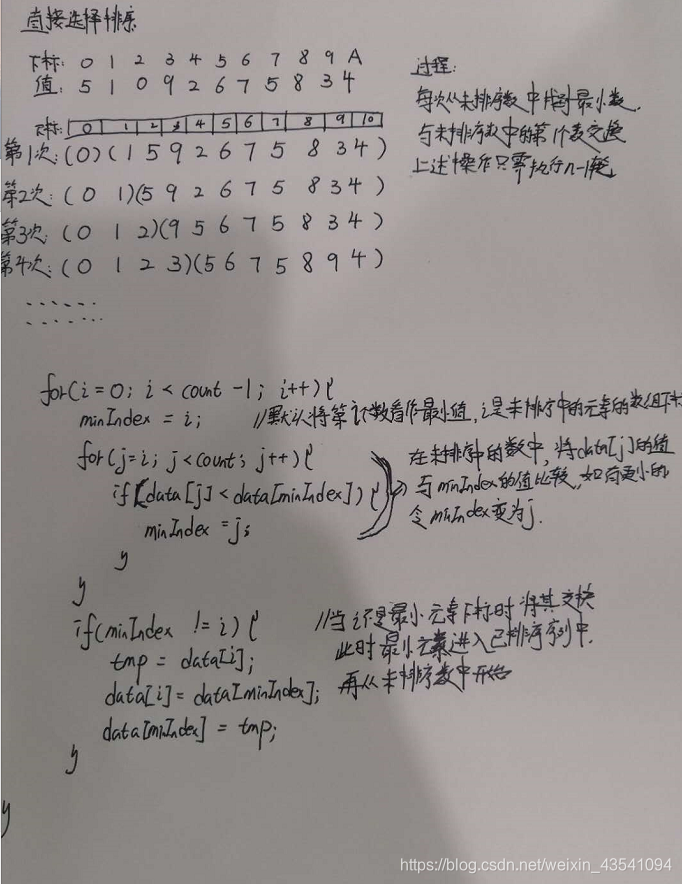 直接选择排序
下标: 0 1 2 3 4 5 6 7 8 9 A
值: 5 1 0 9 2 6 7 5 8 3 4
过程:
每次从未排序数中找到最小数.
与未排序数中的第1个数交换
上述操作只需执行n-1趟
下标: 0 1 2 3 4 5 6 7 8 9 10
第1次: (0)(1 5 9 2 6 7 5 8 3 4)
第2次: (0 1)(5 9 2 6 7 5 8 3 4)
第3次: (0 1 2)(9 5 6 7 5 8 3 4)
第4次: (0 1 2 3)(5 6 7 5 8 9 4)
......
......
for(i=0; i<count-1; i++){
minIndex = i; //默认将第i个数看作最小值, i是未排序中的元素的数组下标
for(j=i; j<count; j++){
if(data[j]<data[minIndex]){
minIndex = j;
}
}
在未排序中的数中, 将data[j]的值
与minIndex的值比较, 如有更小的
令minIndex变为j.
if(minIndex != i){
tmp = data[i];
data[i] = data[minIndex];
data[minIndex] = tmp;
}
//当i不是最小元素下标时将其交换
此时最小元素进入已排序序列中.
再从未排序数中开始
}
https://blog.csdn.net/weixin_43541094